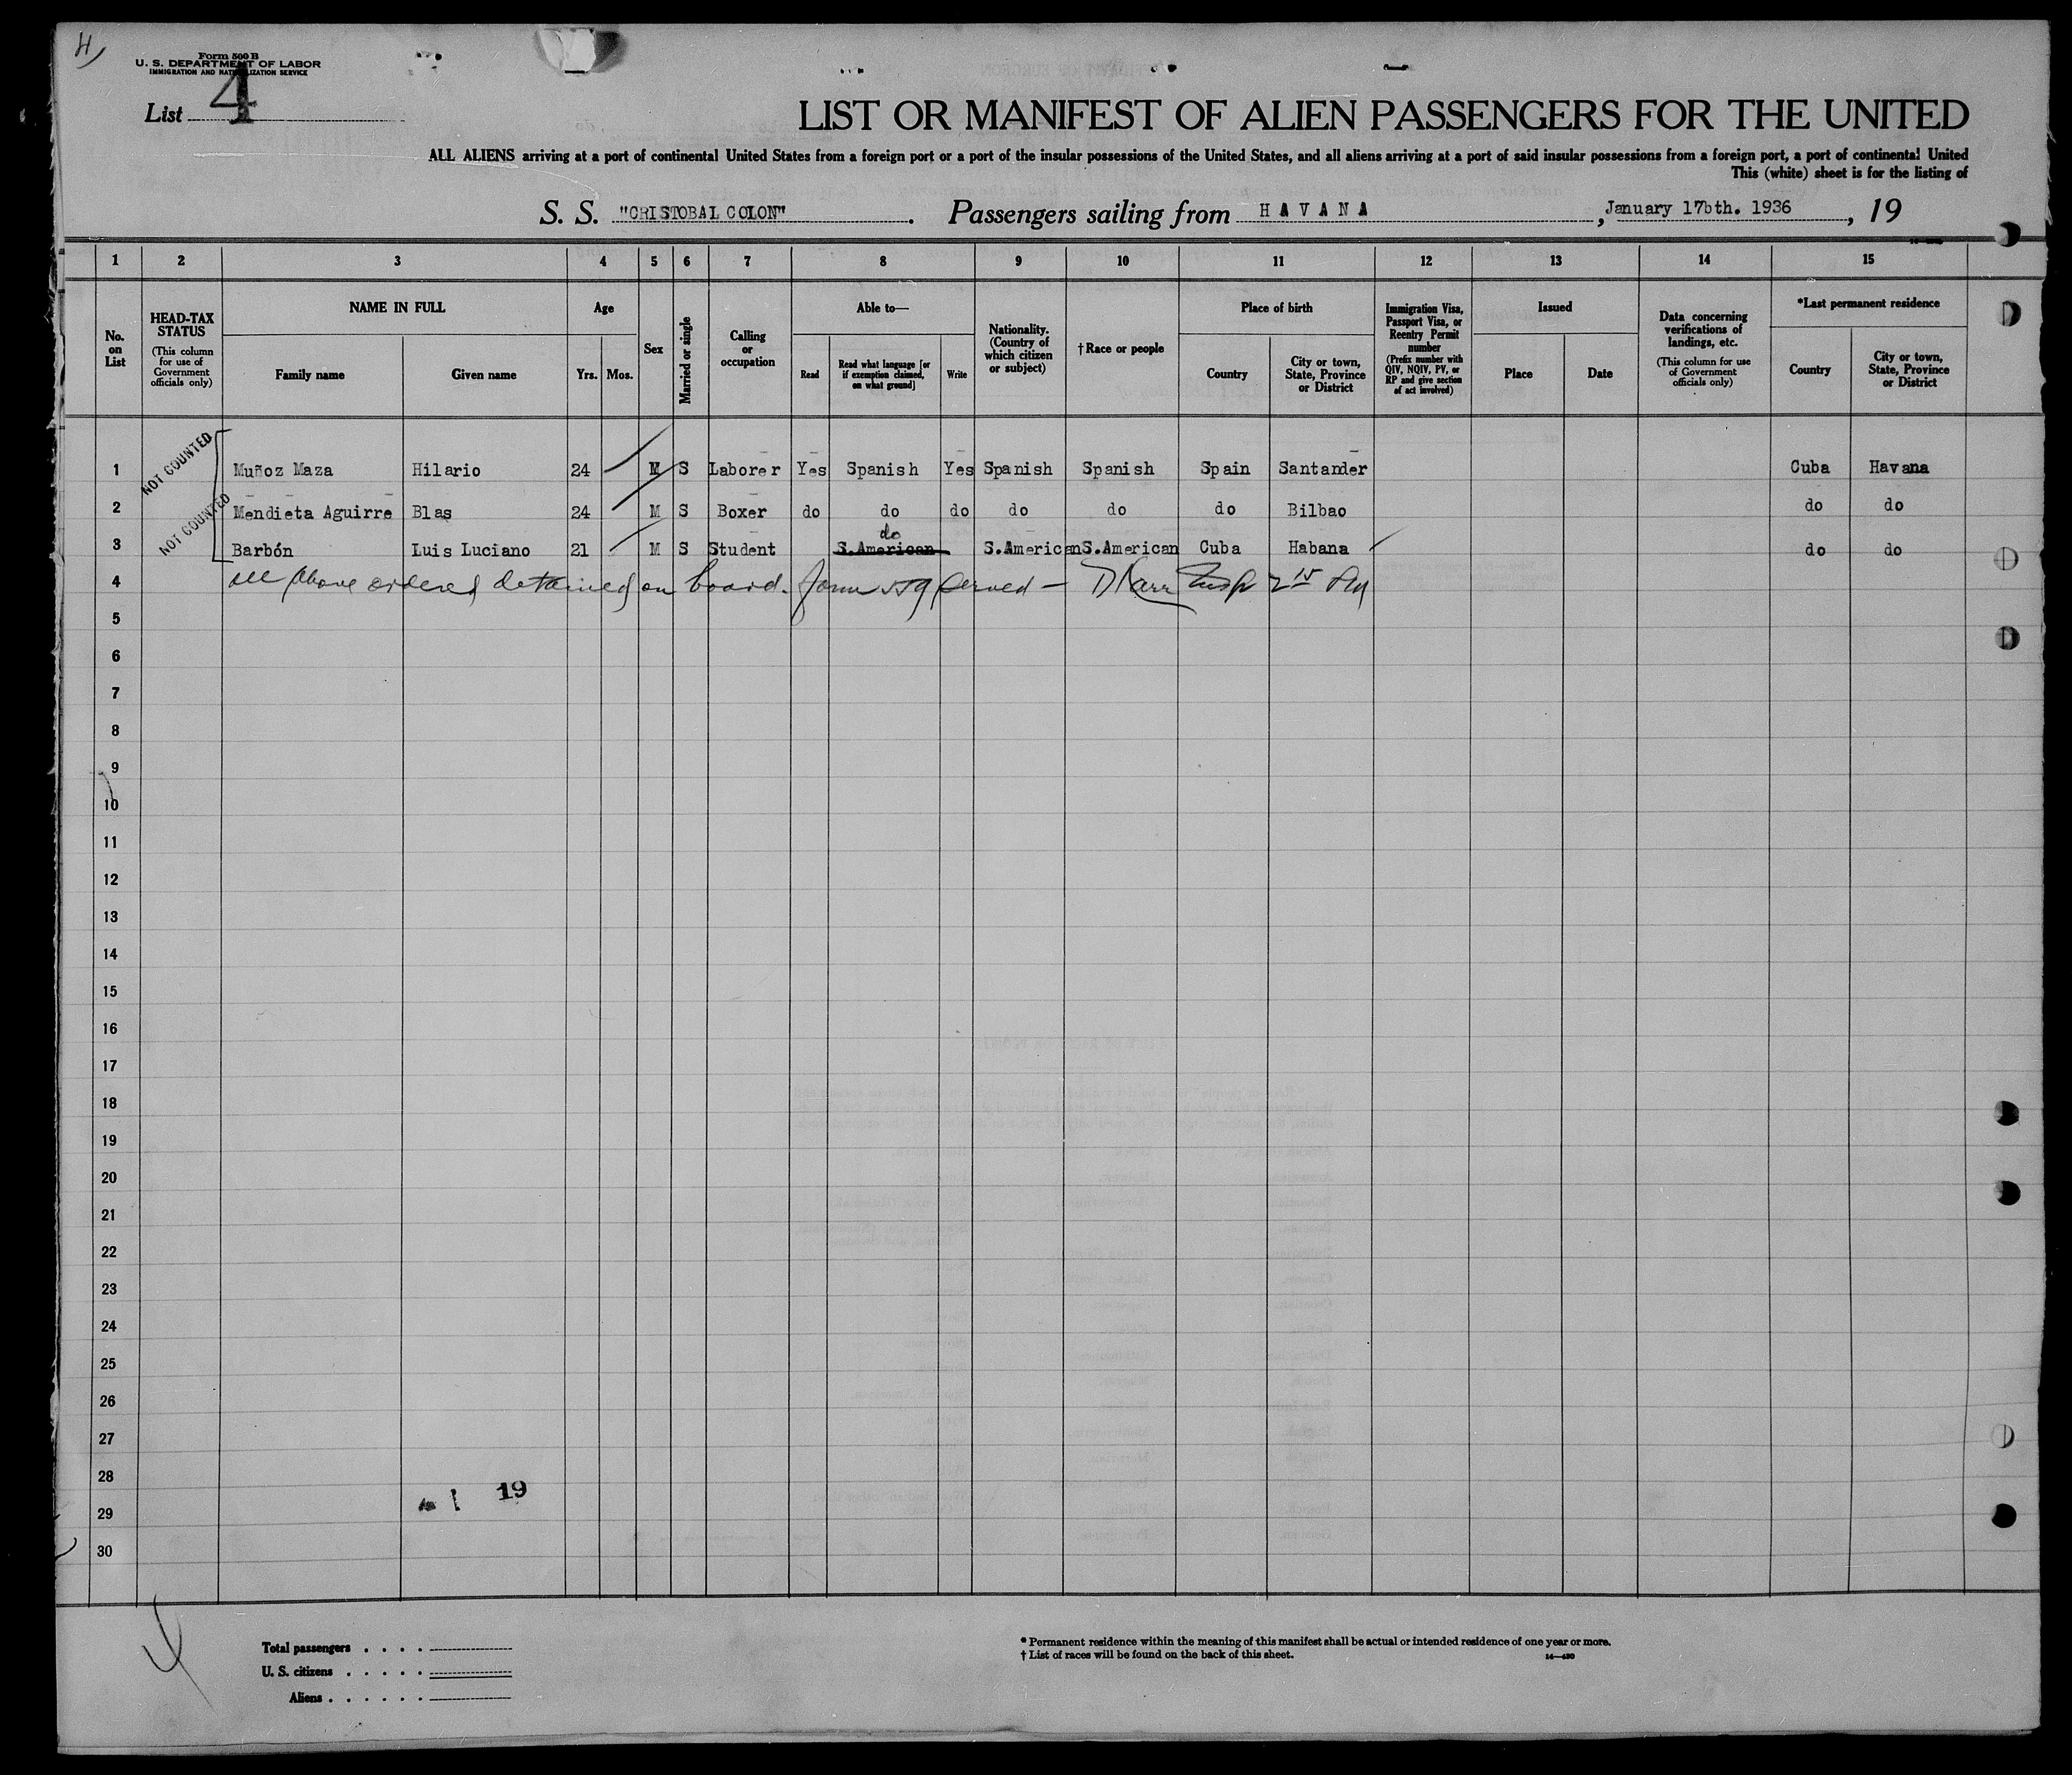 4
Form 500 B
U. S. DEPARTMENT OF LABOR
IMMIGRATION AND NATURALIZATION SERVICE
List 4
LIST OR MANIFEST OF ALIEN PASSENGERS FOR THE UNITED
ALL ALIENS arriving at a port of continental United States from a foreign port or a port of the insular possessions of the United States, and all aliens arriving at a port of said insular possessions from a foreign port, a port of continental United
This (white) sheet is for the listing of
S. S. "CRISTOBAL COLON". Passengers sailing from HAVANA, January 17bth. 1936, 19
1 2 3 4 5 6 7 8 9 10 11 12 13 14 15
No. on List
HEAD-TAX STATUS (This column for use of Government officials only)
NAME IN FULL
Family name
Given name
Age
Yrs. Mos.
Sex
Married or single
Calling or occupation
Able to—
Read
Read what language [or if exemption claimed, on what ground]
Write
Nationality. (Country of which citizen or subject)
†Race or people
Place of birth
Country
City or town, State, Province or District
Immigration Visa, Passport Visa, or Reentry Permit number (Prefix number with QIV, NQIV, PV, or RP and give section of act involved)
Issued
Place
Date
Data concerning verifications of landings, etc. (This column for use of Government officials only)
*Last permanent residence
Country
City or town, State, Province or District
NOT COUNTED
1 Muñoz Maza Hilario 24 M S Laborer Yes Spanish Yes Spanish Spanish Spain Santander Cuba Havana
NOT COUNTED
2 Mendieta Aguirre Blas 24 M S Boxer do do do do do do Bilbao do do
do
3 Barbón Luis Luciano 21 M S Student S.American S.American S.American Cuba Habana do do
4 All above ordered detained on board. form 559 served — Insp
5
6
7
8
9
10
11
12
13
14
15
16
17
18
19
20
21
22
23
24
25
26
27
28
19
29
30
Total passengers . . . .
U. S. citizens . . . . .
Aliens . . . . . .
* Permanent residence within the meaning of this manifest shall be actual or intended residence of one year or more.
† List of races will be found on the back of this sheet.
14—430